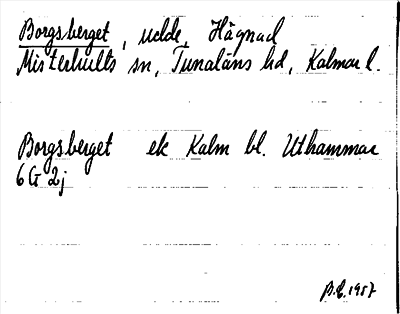 Borgsberget, udde, Hägnad
Misterhults sn, Tunaläns hd, Kalmar l.
Borgsberget ek Kalm bl. Uthammar
6G 2j
B.E. 1957